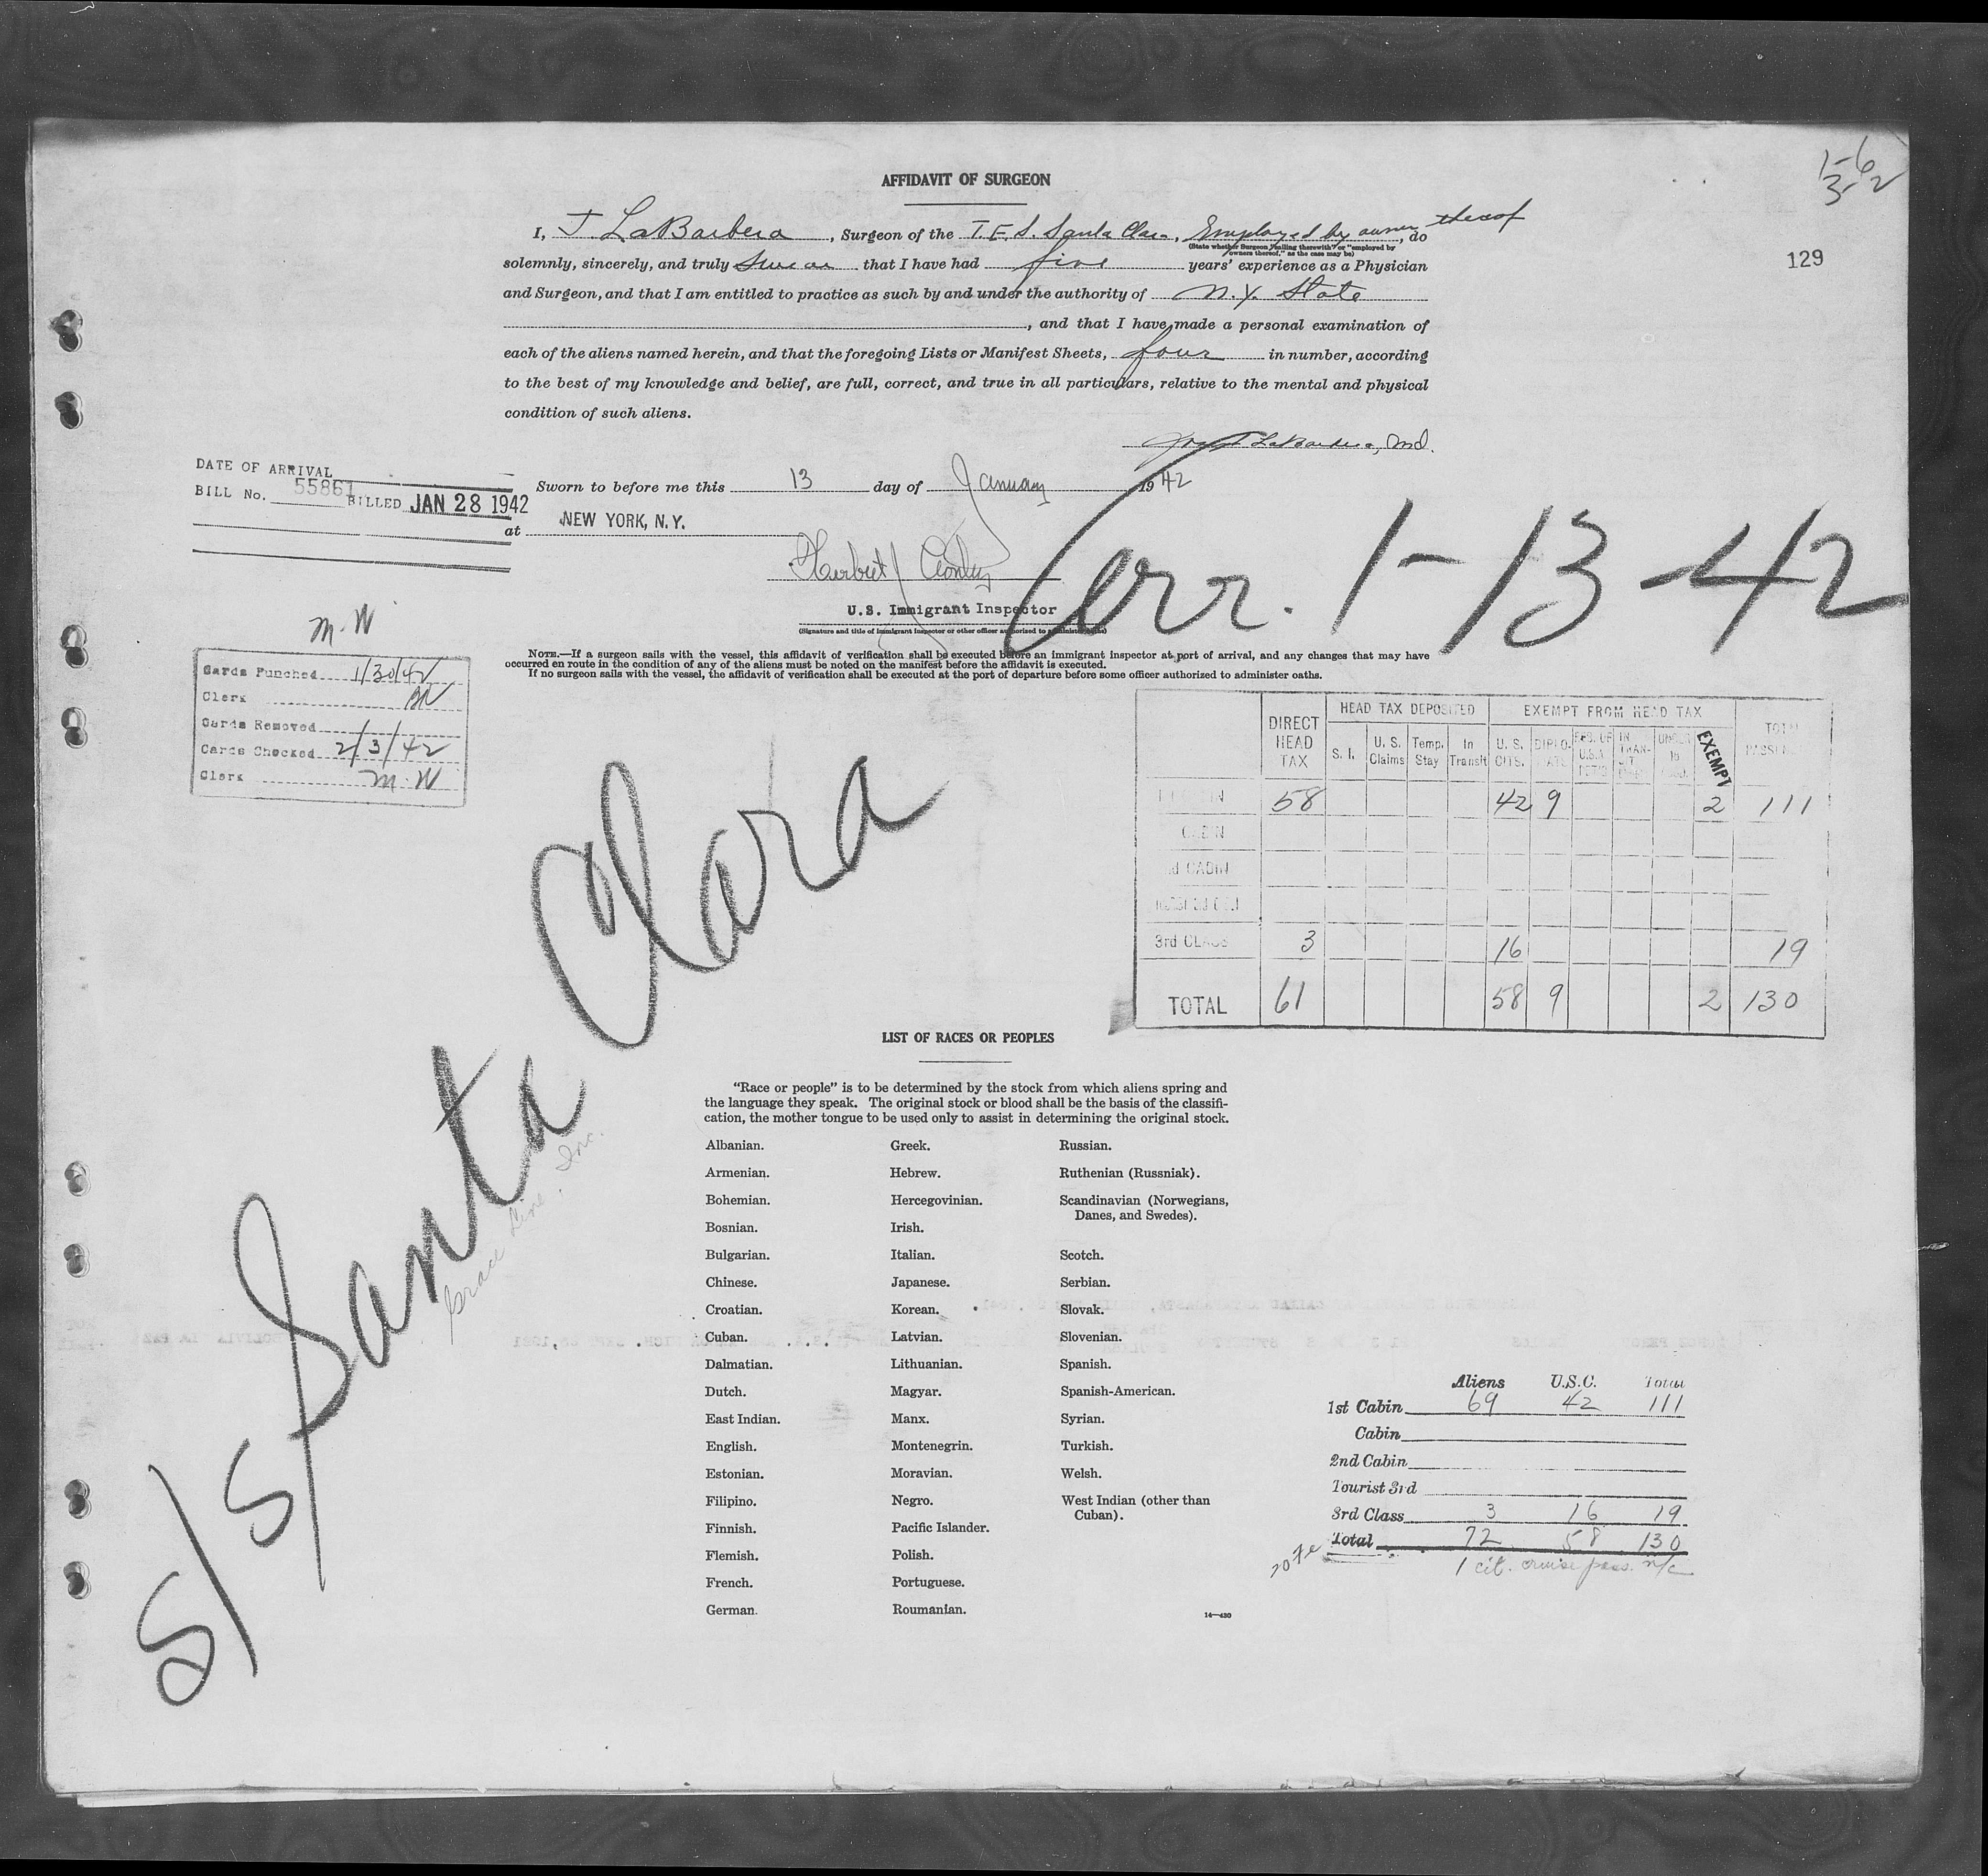 1-6
3-2
129
AFFIDAVIT OF SURGEON
I, J LaBarbera, Surgeon of the T.E.S. Santa Clara, Employed by owner thereof, do
(State whether Surgeon "sailing therewith" or "employed by owners thereof," as the case may be)
solemnly, sincerely, and truly swear that I have had five years' experience as a Physician
and Surgeon, and that I am entitled to practice as such by and under the authority of N.Y. State
, and that I have made a personal examination of
each of the aliens named herein, and that the foregoing Lists or Manifest Sheets, four in number, according
to the best of my knowledge and belief, are full, correct, and true in all particulars, relative to the mental and physical
condition of such aliens.
LaBarbera, M.D.
DATE OF ARRIVAL
BILL No. 55861 BILLED JAN 28 1942
Sworn to before me this 13 day of January 1942
at NEW YORK, N.Y.
Herbert
U.S. Immigrant Inspector
(Signature and title of immigrant inspector or other officer authorized to administer oaths)
arr. 1-13-42
NOTE.—If a surgeon sails with the vessel, this affidavit of verification shall be executed before an immigrant inspector at port of arrival, and any changes that may have
occurred en route in the condition of any of the aliens must be noted on the manifest before the affidavit is executed.
If no surgeon sails with the vessel, the affidavit of verification shall be executed at the port of departure before some officer authorized to administer oaths.
M.W
Cards Punched 1/30/42
Clerk
Cards Removed
Cards Checked 2/3/42
Clerk M.W
DIRECT HEAD TAX
HEAD TAX DEPOSITED
EXEMPT FROM HEAD TAX
TOTAL
S. I.
U. S. Claims
Temp. Stay
In Transit
U. S. CITS.
DIPLO-MATS
IN TRAN-SIT
UNDER 16
EXEMPT
58 42 9 2 111
CABIN
CABIN
3rd CLASS 3 16 19
TOTAL 61 58 9 2 130
S/S Santa Clara
Grace Line, Inc.
LIST OF RACES OR PEOPLES
"Race or people" is to be determined by the stock from which aliens spring and
the language they speak. The original stock or blood shall be the basis of the classifi-
cation, the mother tongue to be used only to assist in determining the original stock.
Albanian.
Armenian.
Bohemian.
Bosnian.
Bulgarian.
Chinese.
Croatian.
Cuban.
Dalmatian.
Dutch.
East Indian.
English.
Estonian.
Filipino.
Finnish.
Flemish.
French.
German.
Greek.
Hebrew.
Hercegovinian.
Irish.
Italian.
Japanese.
Korean.
Latvian.
Lithuanian.
Magyar.
Manx.
Montenegrin.
Moravian.
Negro.
Pacific Islander.
Polish.
Portuguese.
Roumanian.
Russian.
Ruthenian (Russniak).
Scandinavian (Norwegians,
Danes, and Swedes).
Scotch.
Serbian.
Slovak.
Slovenian.
Spanish.
Spanish-American.
Syrian.
Turkish.
Welsh.
West Indian (other than
Cuban).
14—430
Aliens U.S.C. Total
1st Cabin 69 42 111
Cabin
2nd Cabin
Tourist 3rd
3rd Class 3 16 19
Total 72 58 130
note 1 cit. cruise pass. n/c